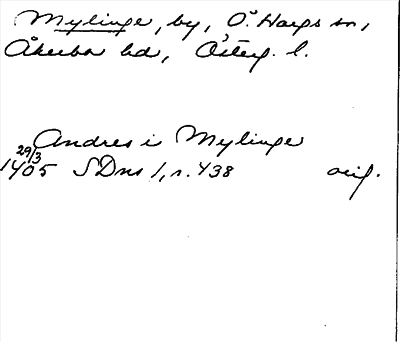 Mylinge, by, Ö. Hargs sn,
Åkerbo hd, Österg. l.
Andres i Mylinge
29/3
1405 SDns 1, n. 438 orig.